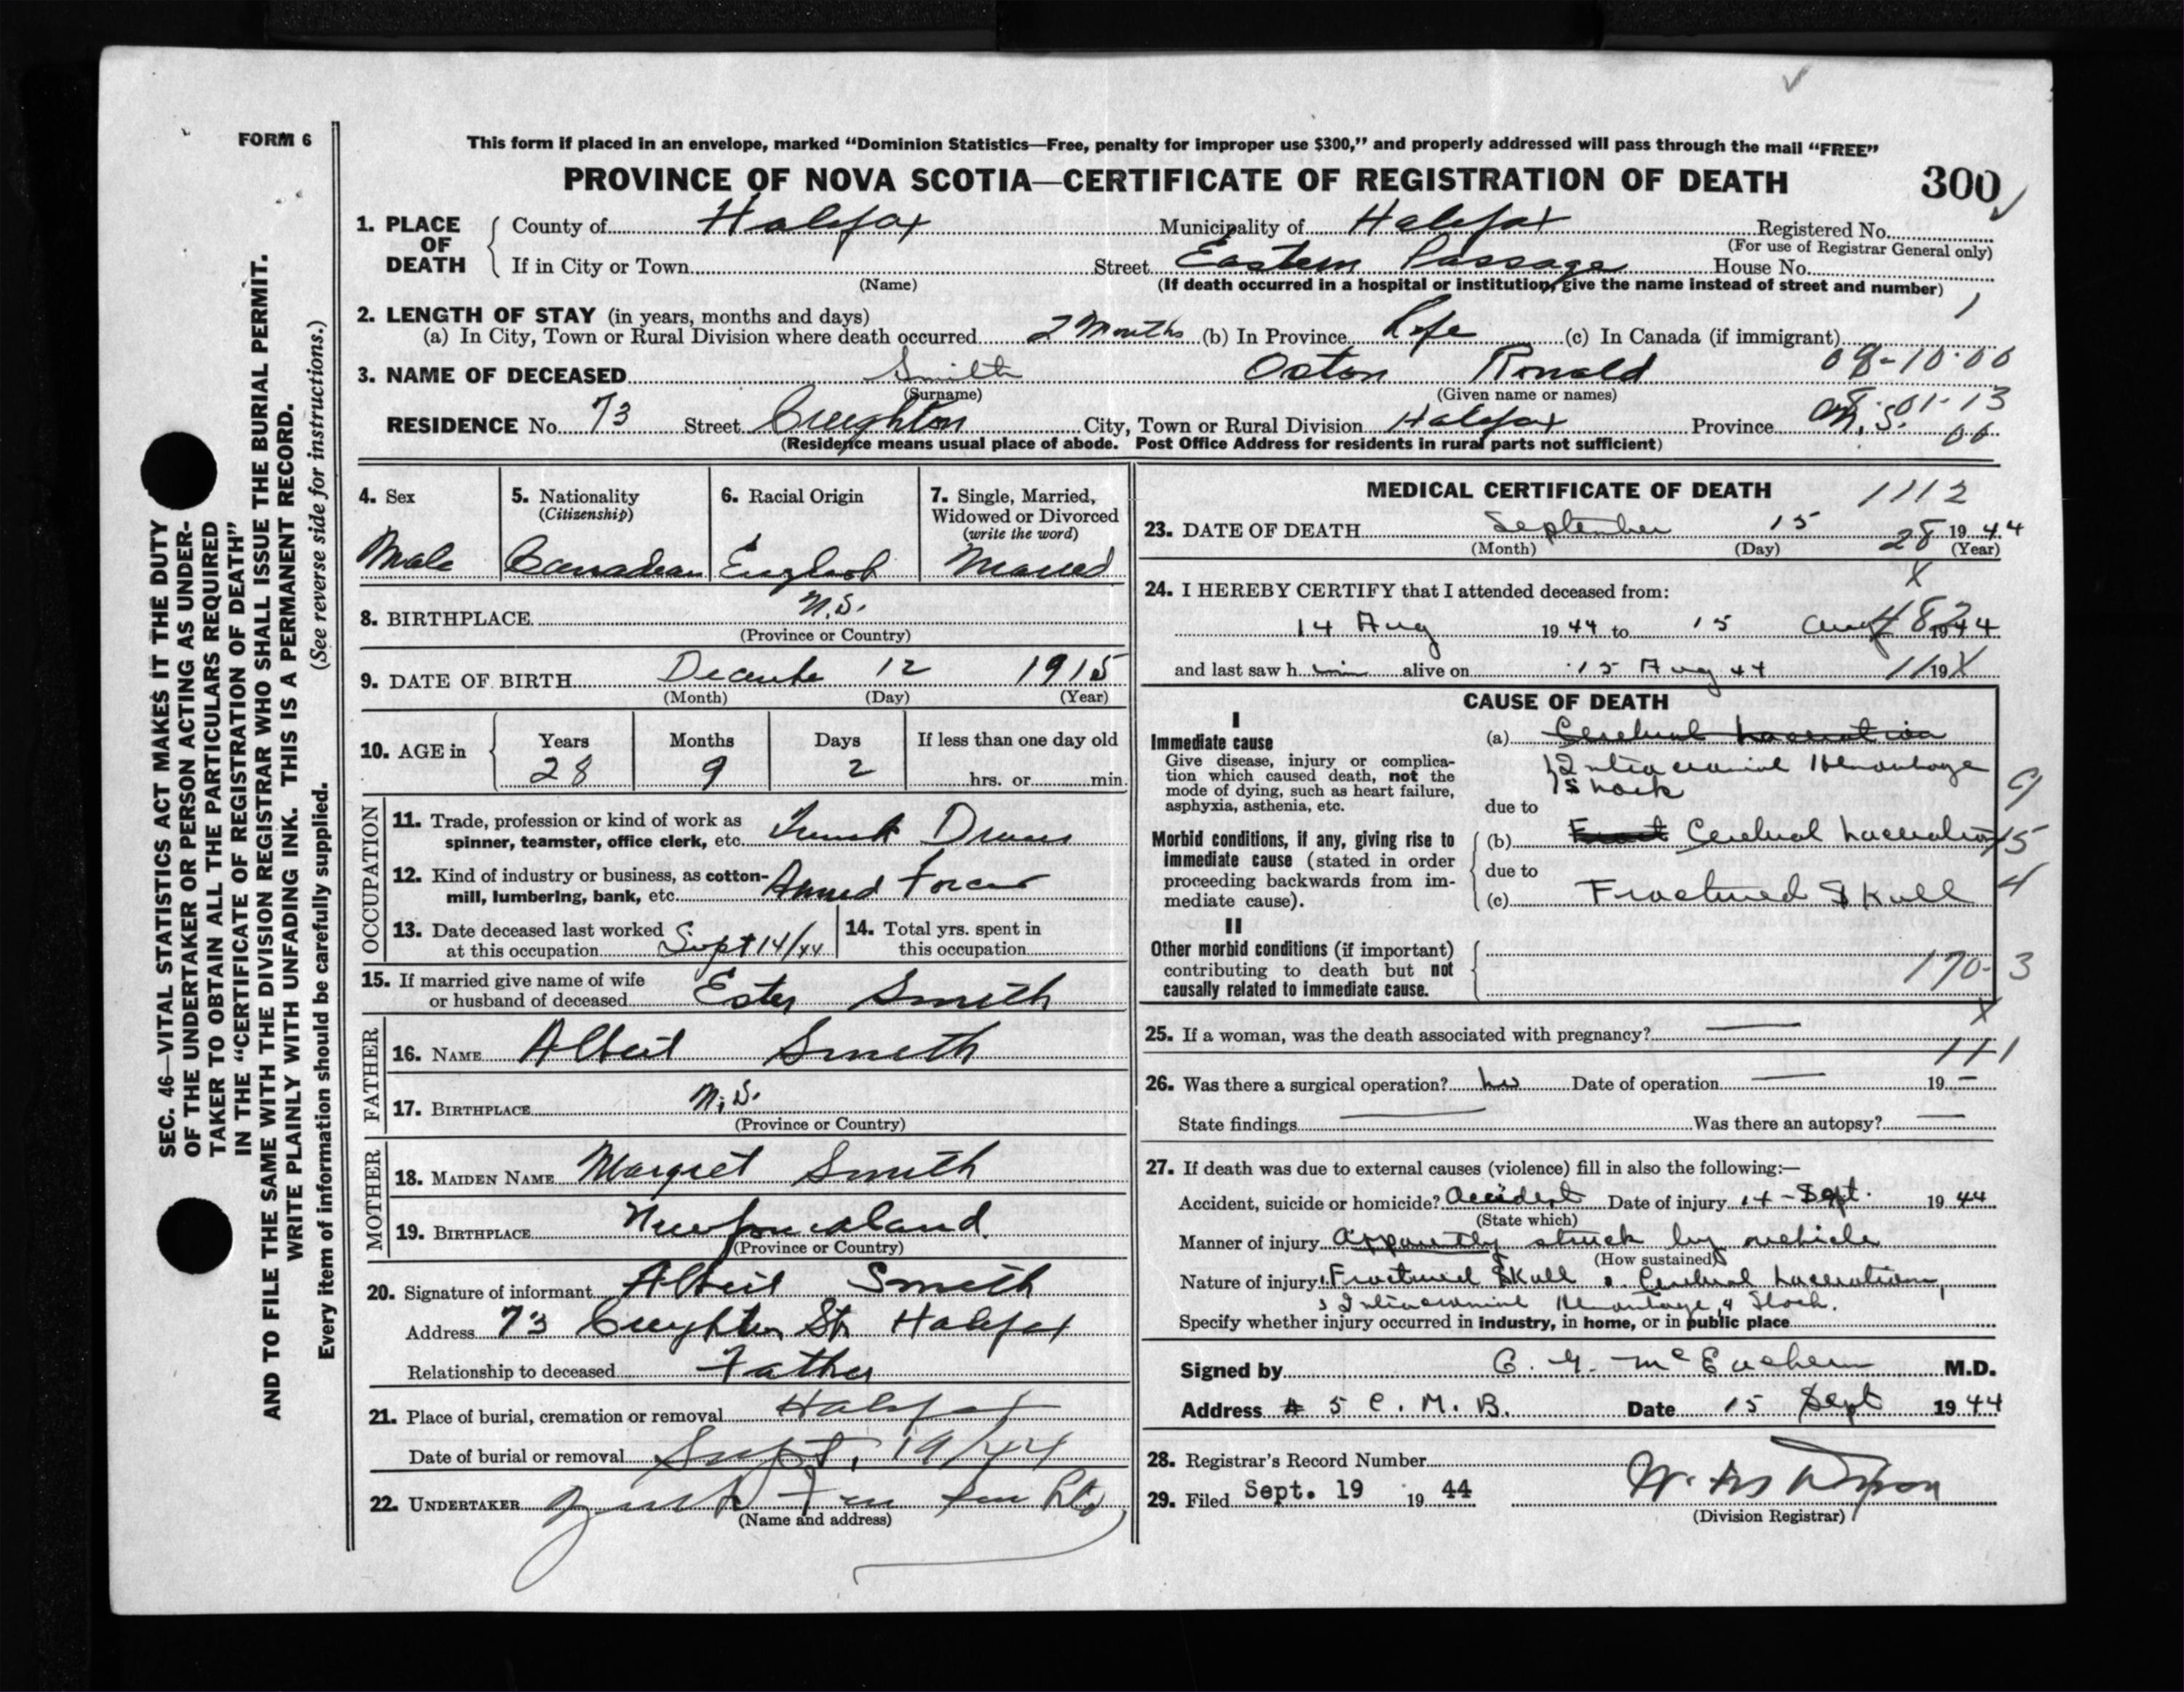 FORM 6
This form if placed in an envelope, marked "Dominion Statistics—Free, penalty for improper use $300," and properly addressed will pass through the mail "FREE"
PROVINCE OF NOVA SCOTIA—CERTIFICATE OF REGISTRATION OF DEATH 300
SEC. 46—VITAL STATISTICS ACT MAKES IT THE DUTY
OF THE UNDERTAKER OR PERSON ACTING AS UNDER-
TAKER TO OBTAIN ALL THE PARTICULARS REQUIRED
IN THE "CERTIFICATE OF REGISTRATION OF DEATH"
AND TO FILE THE SAME WITH THE DIVISION REGISTRAR WHO SHALL ISSUE THE BURIAL PERMIT.
WRITE PLAINLY WITH UNFADING INK. THIS IS A PERMANENT RECORD.
Every item of information should be carefully supplied. (See reverse side for instructions.)
1. PLACE OF DEATH County of Halifax Municipality of Halifax Registered No.
(For use of Registrar General only)
If in City or Town Street Eastern Passage House No.
(Name) (If death occurred in a hospital or institution, give the name instead of street and number)
1
2. LENGTH OF STAY (in years, months and days)
(a) In City, Town or Rural Division where death occurred 2 Months (b) In Province Life (c) In Canada (if immigrant)
09-10-00
3. NAME OF DECEASED Smith Ronald
(Surname) (Given name or names)
01-13
RESIDENCE No. 73 Street Creighton City, Town or Rural Division Halifax Province N.S.
00
(Residence means usual place of abode. Post Office Address for residents in rural parts not sufficient)
4. Sex
Male
5. Nationality
(Citizenship)
Canadian
6. Racial Origin
English
7. Single, Married,
Widowed or Divorced
(write the word)
Married
8. BIRTHPLACE N.S.
(Province or Country)
9. DATE OF BIRTH December 12 1915
(Month) (Day) (Year)
10. AGE in Years Months Days If less than one day old
28 9 2 hrs. or min.
OCCUPATION
11. Trade, profession or kind of work as
spinner, teamster, office clerk, etc. Truck Driver
12. Kind of industry or business, as cotton-
mill, lumbering, bank, etc. Armed Forces
13. Date deceased last worked
at this occupation Sept 14/44
14. Total yrs. spent in
this occupation
15. If married give name of wife
or husband of deceased Ester Smith
FATHER
16. NAME Albert Smith
17. BIRTHPLACE N.S.
(Province or Country)
MOTHER
18. MAIDEN NAME Margret Smith
19. BIRTHPLACE Newfoundland.
(Province or Country)
20. Signature of informant Albert Smith
Address 73 Creighton St Halifax
Relationship to deceased Father
21. Place of burial, cremation or removal Halifax
Date of burial or removal Sept. 19/44
22. UNDERTAKER
(Name and address)
MEDICAL CERTIFICATE OF DEATH 1112
23. DATE OF DEATH September 15 1944
(Month) (Day) (Year)
28
X
24. I HEREBY CERTIFY that I attended deceased from:
14 Aug 1944 to 15 Aug 1944
482
and last saw him alive on 15 Aug 44 19
11 X
CAUSE OF DEATH
I
Immediate cause
Give disease, injury or complica-
tion which caused death, not the
mode of dying, such as heart failure,
asphyxia, asthenia, etc.
(a) Cerebral Laceration
Intracranial Hemorrhage
Shock
due to
9
Morbid conditions, if any, giving rise to
immediate cause (stated in order
proceeding backwards from im-
mediate cause).
(b) Fract Cerebral Laceration
15
due to
4
(c) Fractured Skull
II
Other morbid conditions (if important)
contributing to death but not
causally related to immediate cause.
170-3
X
25. If a woman, was the death associated with pregnancy?
111
26. Was there a surgical operation? no Date of operation 19
State findings Was there an autopsy?
27. If death was due to external causes (violence) fill in also the following:—
Accident, suicide or homicide? Accident Date of injury 14 - Sept. 1944
(State which)
Manner of injury Apparently struck by vehicle
(How sustained)
Nature of injury 1 Fractured Skull 2 Cerebral Laceration,
3 Intracranial Hemorrhage, 4 Shock.
Specify whether injury occurred in industry, in home, or in public place
Signed by C. G. McEachern M.D.
Address # 5 C. M. B. Date 15 Sept 1944
28. Registrar's Record Number
29. Filed Sept. 19 19 44
(Division Registrar)